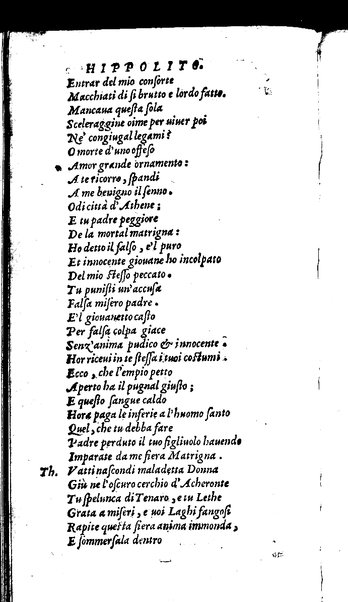 HIPPOLITO.
Entrar del mio consorte
Macchiati di sì brutto e lordo fatto.
Mancaua questa sola
Sceleraggine oime per viuer poi
Ne' congiugal legami?
O morte d'uno offeso
Amor grande ornamento:
A te ricorro, spandi
A me benigno il senno.
Odi città d'Athene;
E tu padre peggiore
De la mortal matrigna:
Ho detto il falso, e'l puro
Et innocente giouane ho incolpato
Del mio stesso peccato.
Tu punisti un'accusa
Falsa misero padre.
E'l giouanetto casto
Per falsa colpa giace
Senz'anima pudico & innocente.
Hor riceui in te stessa i tuoi costumi.
Ecco, che l'empio petto
Aperto ha il pugnal giusto;
E questo sangue caldo
Hora paga le inferie a l'huomo santo
Quel, che tu debba fare
Padre perduto il tuo figliuolo hauendo
Imparate da me fiera Matrigna.
Th. Vatti nascondi maladetta Donna
Giù ne l'oscuro cerchio d'Acheronte
Tu spelunca di Tenaro, e tu Lethe
Grata a miseri, e uoi Laghi fangosi
Rapite questa fiera anima immonda,
E sommersala dentro